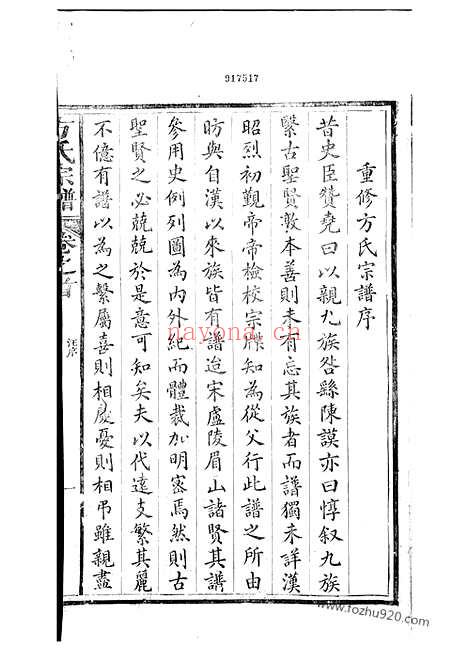 917517
重修方氏宗譜序
昔史臣贊堯曰以親九族咎繇陳謨亦曰惇叙九族
繄古聖賢敦本善則未有忘其族者而譜獨未詳漢
昭烈初觀帝帝檢校宗牒知為從父行此譜之所由
昉與自漢以來族皆有譜迨宋盧陵眉山諸賢其譜
參用史例列圖為內外紀而體裁加明宻焉然則古
聖賢之必兢兢於是意可知矣夫以代遠支繁其麗
不億有譜以為之繫屬喜則相慶憂則相弔雖親盡
方氏宗譜
卷之首
汪序
一
nayona.cn
www.fozhu920.com